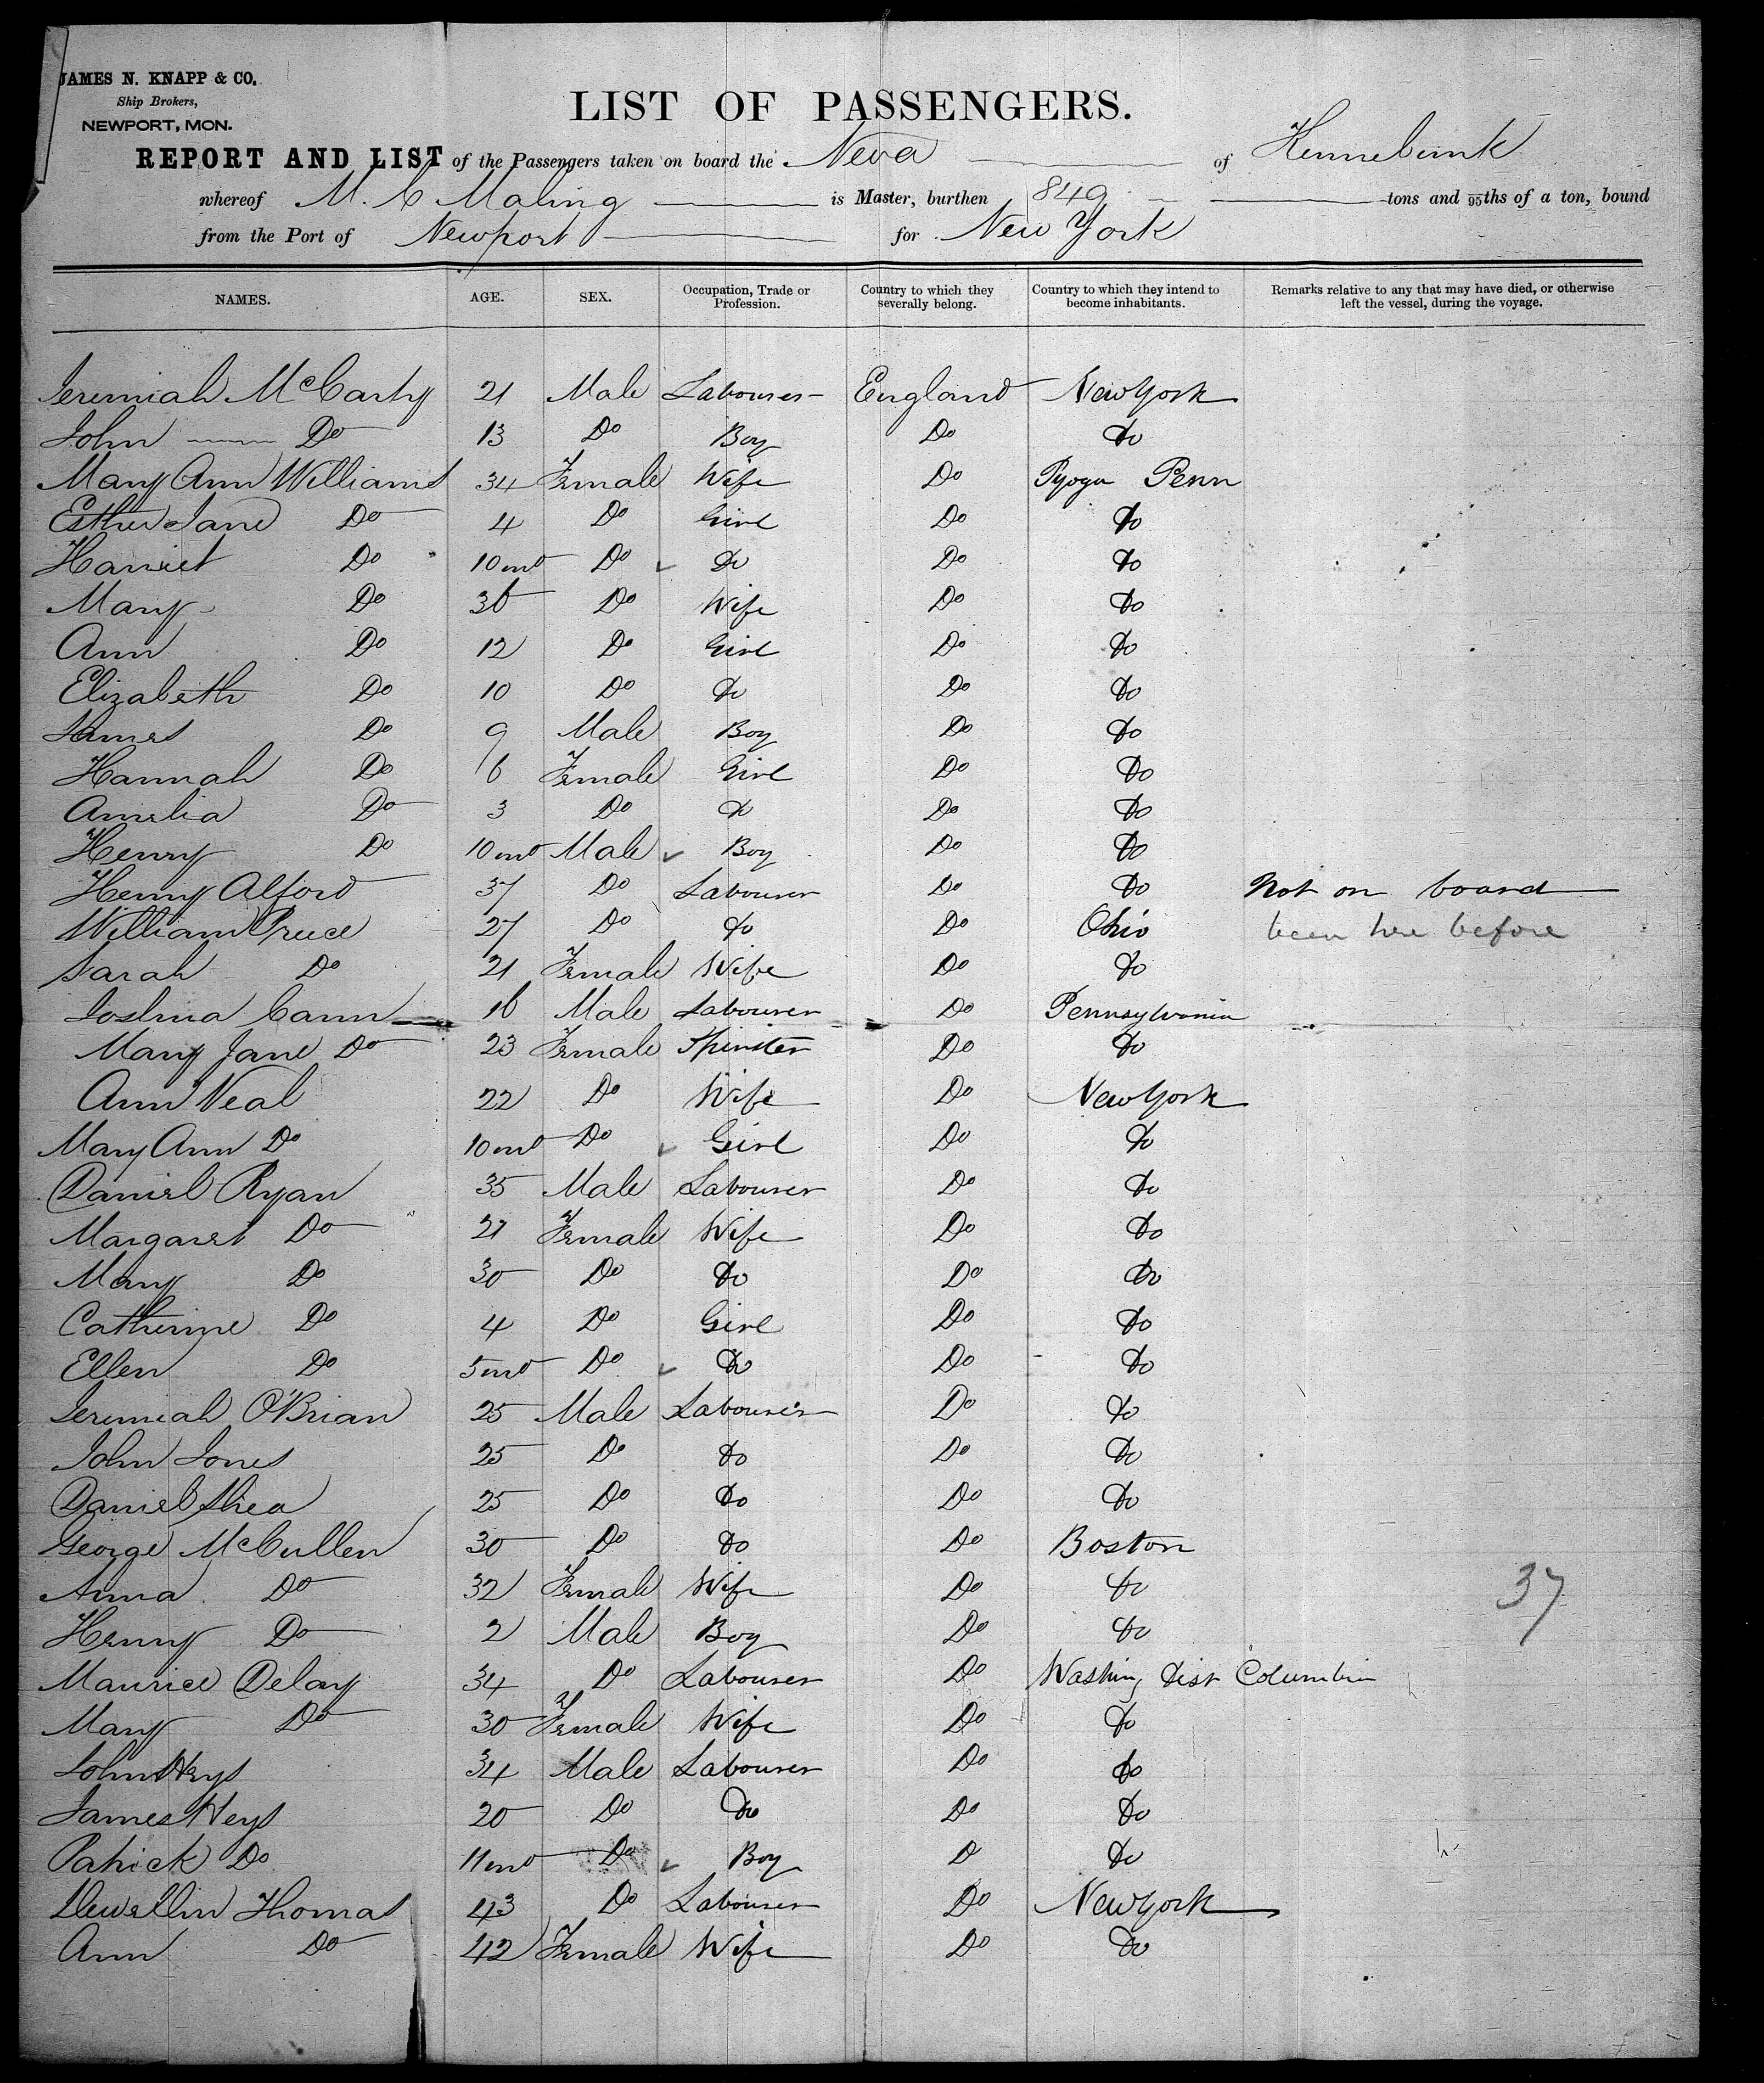 JAMES N. KNAPP & CO.
Ship Brokers,
NEWPORT, MON.
LIST OF PASSENGERS.
REPORT AND LIST of the Passengers taken on board the Neva of Kennebunk
whereof M. C Maling is Master, burthen 849 tons and 95ths of a ton, bound
from the Port of Newport for New York
NAMES. AGE. SEX. Occupation, Trade or Profession. Country to which they severally belong. Country to which they intend to become inhabitants. Remarks relative to any that may have died, or otherwise left the vessel, during the voyage.
Jeremiah McCarty 21 Male Labourer England New York
John Do 13 Do Boy Do Do
Mary Ann Williams 34 Female Wife Do Pyoga Penn
Esther Jane Do 4 Do Girl Do Do
Harriet Do 10 mo Do Do Do Do
Mary Do 36 Do Wife Do Do
Ann Do 12 Do Girl Do Do
Elizabeth Do 10 Do Do Do Do
James Do 9 Male Boy Do Do
Hannah Do 6 Female Girl Do Do
Amelia Do 3 Do Do Do Do
Henry Do 10 mo Male Boy Do Do
Henry Alford 37 Do Labourer Do Do Not on board
William Pruce 27 Do Do Do Ohio been here before
Sarah Do 21 Female Wife Do Do
Joshua Cann 16 Male Labourer Do Pennsylvania
Mary Jane Do 23 Female Spinster Do Do
Ann Neal 22 Do Wife Do New York
Mary Ann Do 10 mo Do Girl Do Do
Daniel Ryan 35 Male Labourer Do Do
Margaret Do 21 Female Wife Do Do
Mary Do 30 Do Do Do Do
Catherine Do 4 Do Girl Do Do
Ellen Do 5 mo Do Do Do Do
Jeremiah O'Brian 25 Male Labourer Do Do
John Jones 25 Do Do Do Do
Daniel Shea 25 Do Do Do Do
George McCullen 30 Do Do Do Boston
Anna Do 32 Female Wife Do Do 37
Henry Do 2 Male Boy Do Do
Maurice Delay 34 Do Labourer Do Washing Dist Columbia
Mary Do 30 Female Wife Do Do
John Heys 34 Male Labourer Do Do
James Heys 20 Do Do Do Do
Patrick Do 11 mo Do Boy D Do
Llewellin Thomas 43 Do Labourer Do New York
Ann Do 42 Female Wife Do Do